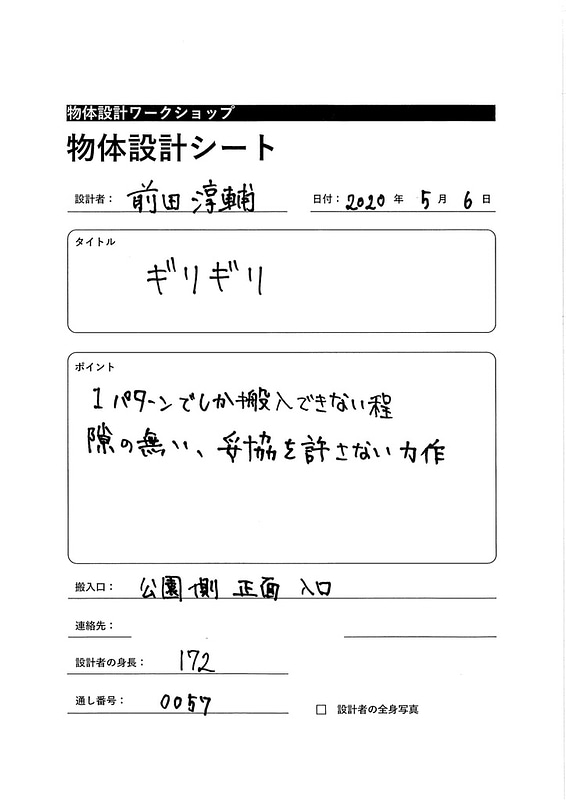 物体設計ワークショップ
物体設計シート
設計者： 前田 淳輔 日付： 2020 年 5 月 6 日
タイトル
ギリギリ
ポイント
1パターンでしか搬入できない程
隙の無い、妥協を許さない力作
搬入口： 公園側 正面 入口
連絡先：
設計者の身長： 172
通し番号： 0057
□ 設計者の全身写真